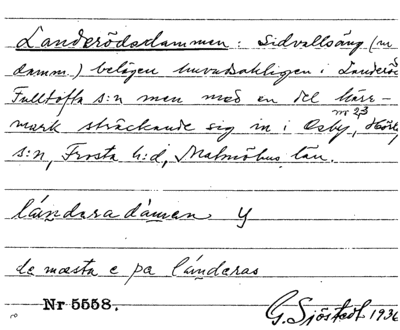 Landerödsdammen: Sidvallsäng (m
damm.) belägen huvudsakligen i Landerö
Fulltofta s:n men med en del kärr-
mark sträckande sig in i Osby, Hörby
s:n, Frosta h:d, Malmöhus län.
lándaradámen y
de mæsta e pa lánderas
Nr 5558. G. Sjöstedt 1936